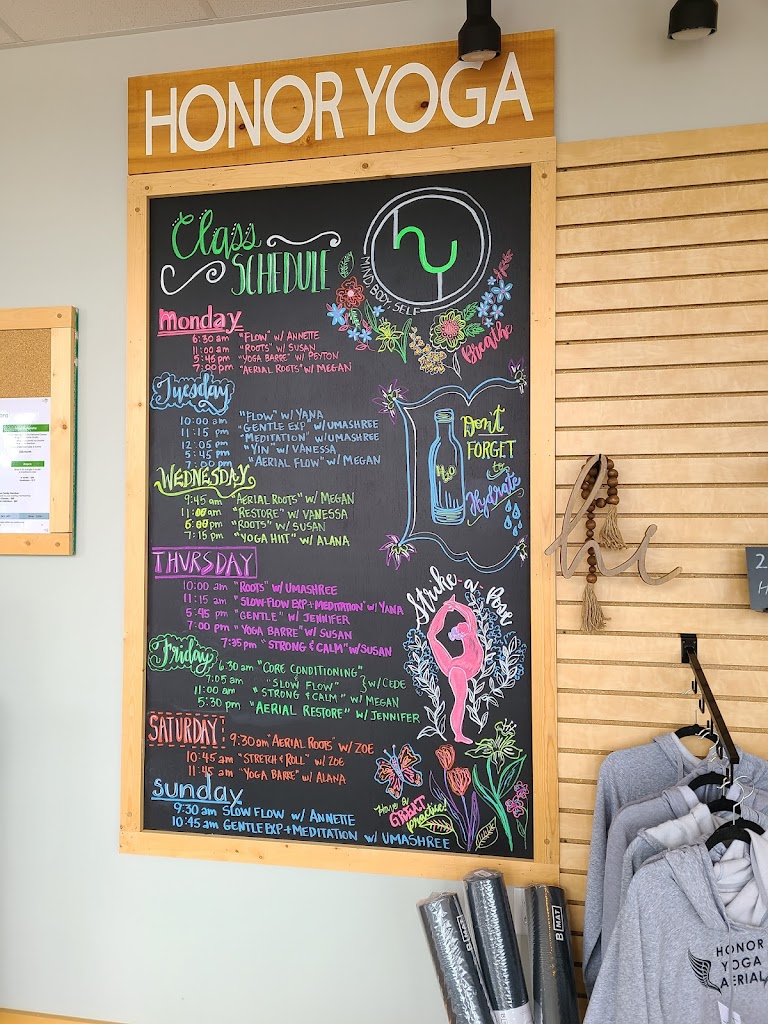 HONOR YOGA
Class
SCHEDULE
hy
MIND, BODY, SELF
Breathe
Monday
6:30 am "FLOW" w/ ANNETTE
11:00 am "ROOTS" w/ SUSAN
5:45 pm "YOGA BARRE" w/ PEYTON
7:00 pm "AERIAL ROOTS" w/ MEGAN
Tuesday
10:00 am "FLOW" w/ YANA
11:15 pm "GENTLE EXP" w/ UMASHREE
12:05 pm "MEDITATION" w/ UMASHREE
5:45 pm "YIN" w/ VANESSA
7:00 pm "AERIAL FLOW" w/ MEGAN
WEDNESDAY
9:45 am AERIAL ROOTS" w/ MEGAN
11:00 am "RESTORE" w/ VANESSA
6:00 pm "ROOTS" w/ SUSAN
7:15 pm "YOGA HIIT" w/ ALANA
THURSDAY
10:00 am "ROOTS" w/ UMASHREE
11:15 am "SLOW FLOW EXP + MEDITATION" w/ YANA
5:45 pm "GENTLE" w/ JENNIFER
7:00 pm "YOGA BARRE" w/ SUSAN
7:35 pm "STRONG & CALM" w/ SUSAN
Friday
6:30 am "CORE CONDITIONING"
7:05 am "SLOW FLOW" } w/ CEDE
11:00 am "STRONG & CALM" w/ MEGAN
5:30 pm "AERIAL RESTORE" w/ JENNIFER
SATURDAY!
9:30 am "AERIAL ROOTS" w/ ZOE
10:45 am "STRETCH & ROLL" w/ ZOE
11:45 am "YOGA BARRE" w/ ALANA
Sunday
9:30 am SLOW FLOW w/ ANNETTE
10:45 am GENTLE EXP + MEDITATION w/ UMASHREE
Don't
FORGET
to
Hydrate
H2O
Strike a Pose
Have a
GREAT
practice!
hi
B MAT
HONOR
YOGA
AERIAL